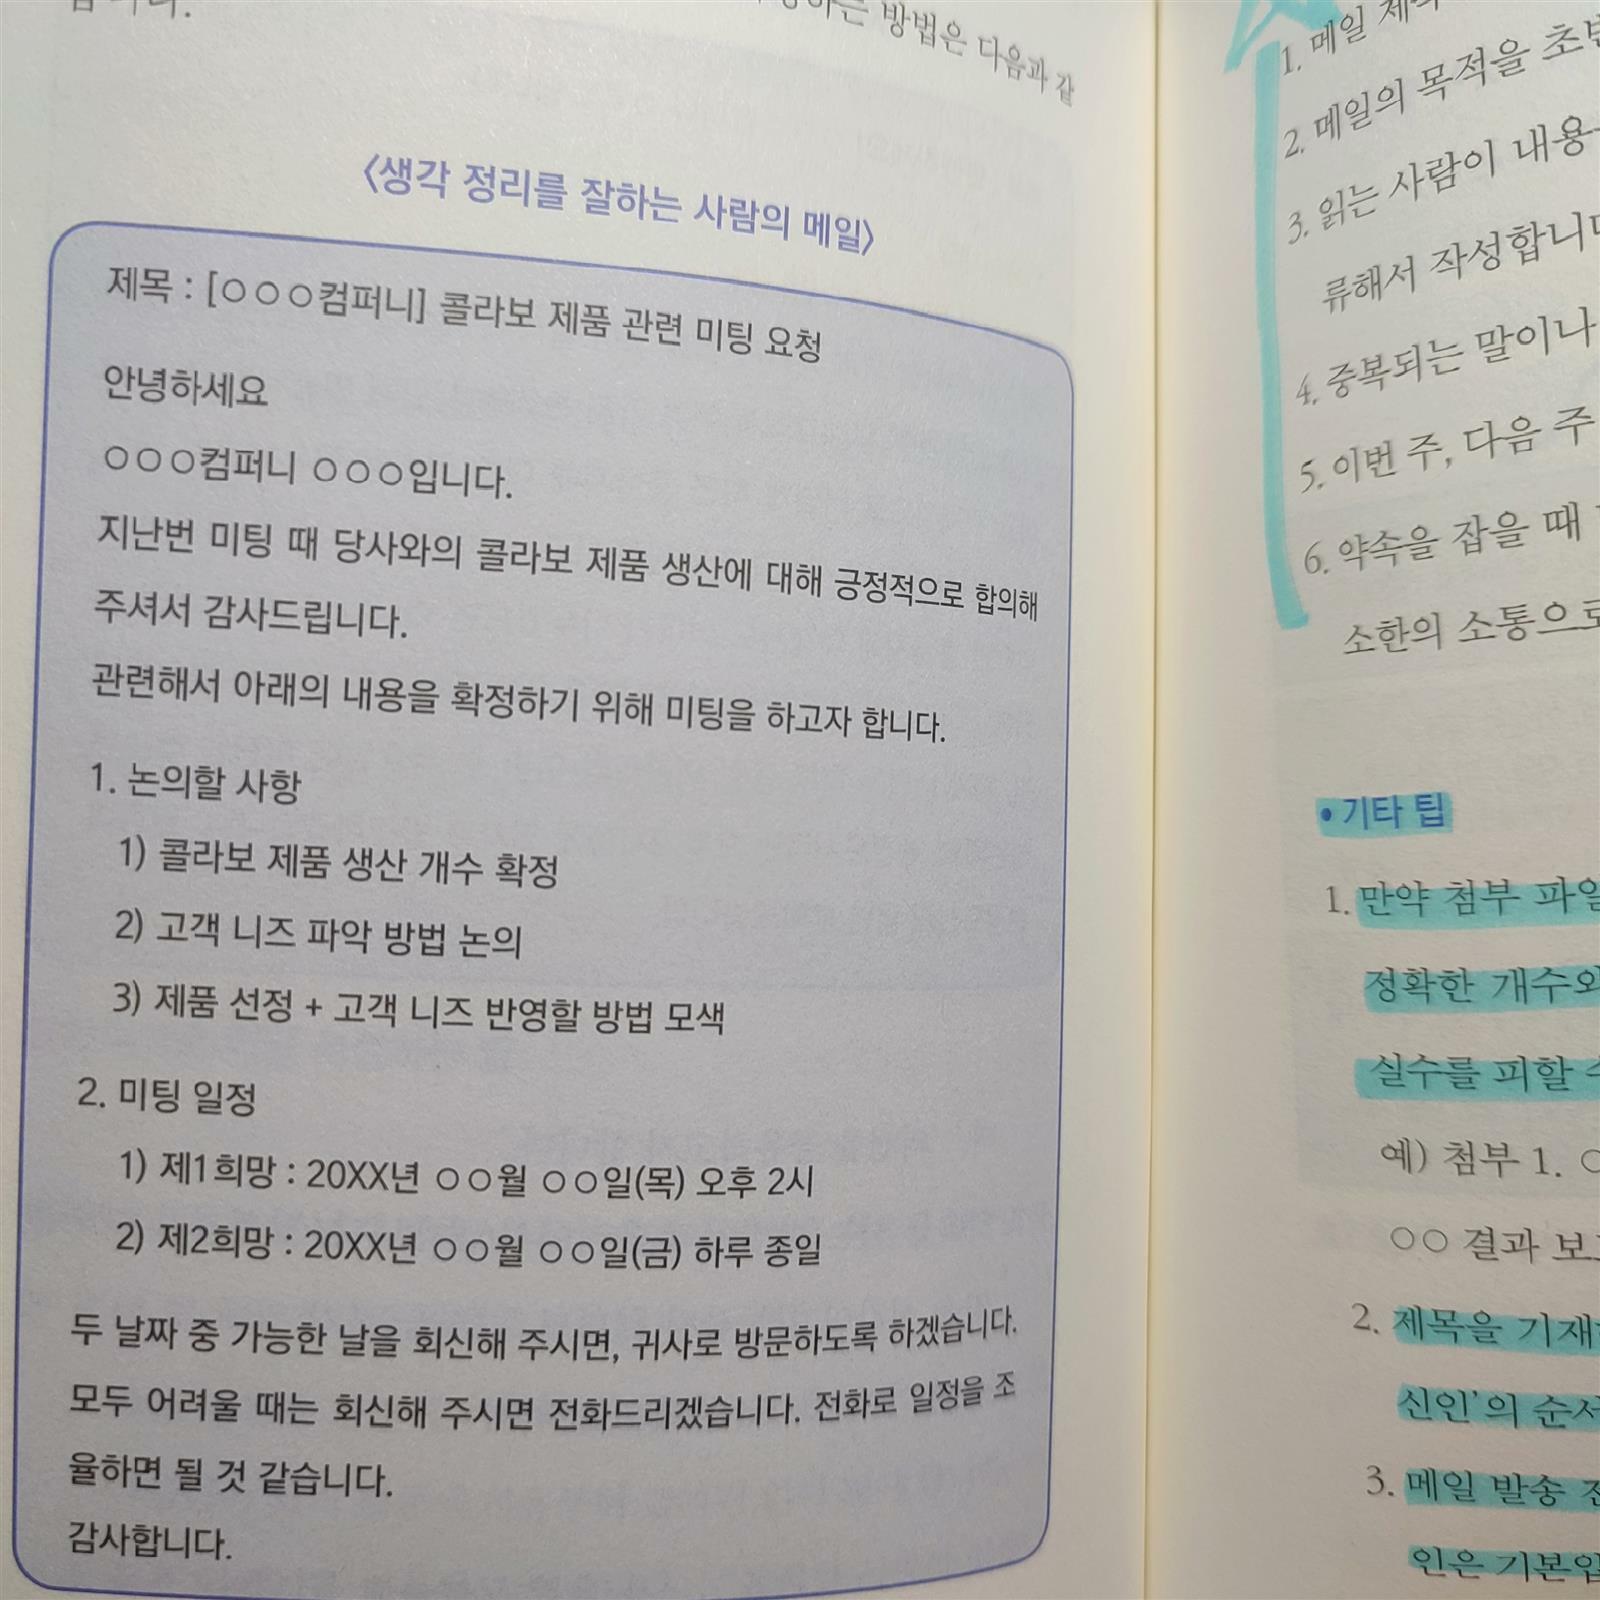 방법은 다음과 같
<생각 정리를 잘하는 사람의 메일>
제목 : [○○○컴퍼니] 콜라보 제품 관련 미팅 요청
안녕하세요
○○○컴퍼니 ○○○입니다.
지난번 미팅 때 당사와의 콜라보 제품 생산에 대해 긍정적으로 합의해
주셔서 감사드립니다.
관련해서 아래의 내용을 확정하기 위해 미팅을 하고자 합니다.
1. 논의할 사항
1) 콜라보 제품 생산 개수 확정
2) 고객 니즈 파악 방법 논의
3) 제품 선정 + 고객 니즈 반영할 방법 모색
2. 미팅 일정
1) 제1희망 : 20XX년 ○○월 ○○일(목) 오후 2시
2) 제2희망 : 20XX년 ○○월 ○○일(금) 하루 종일
두 날짜 중 가능한 날을 회신해 주시면, 귀사로 방문하도록 하겠습니다.
모두 어려울 때는 회신해 주시면 전화드리겠습니다. 전화로 일정을 조
율하면 될 것 같습니다.
감사합니다.
1. 메일
2. 메일의 목적을
3. 읽는 사람이 내용
류해서
4. 중복되는 말이나
5. 이번 주, 다음 주
6. 약속을 잡을 때
소한의 소통으로
• 기타 팁
1. 만약 첨부
정확한 개수와
실수를 피할
예) 첨부 1.
○○ 결과
2. 제목을
신인'의
3. 메일 발송
인은